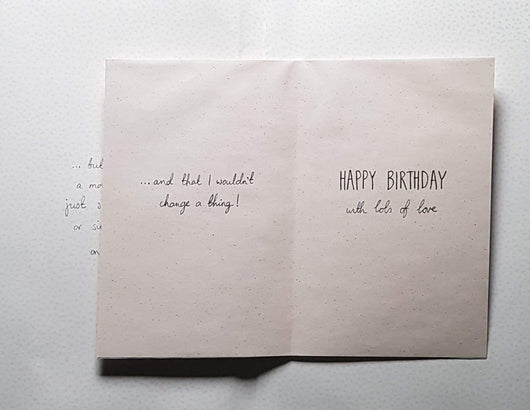 ... but
a
just
or
...and that I wouldn't
change a thing!
HAPPY BIRTHDAY
with lots of love